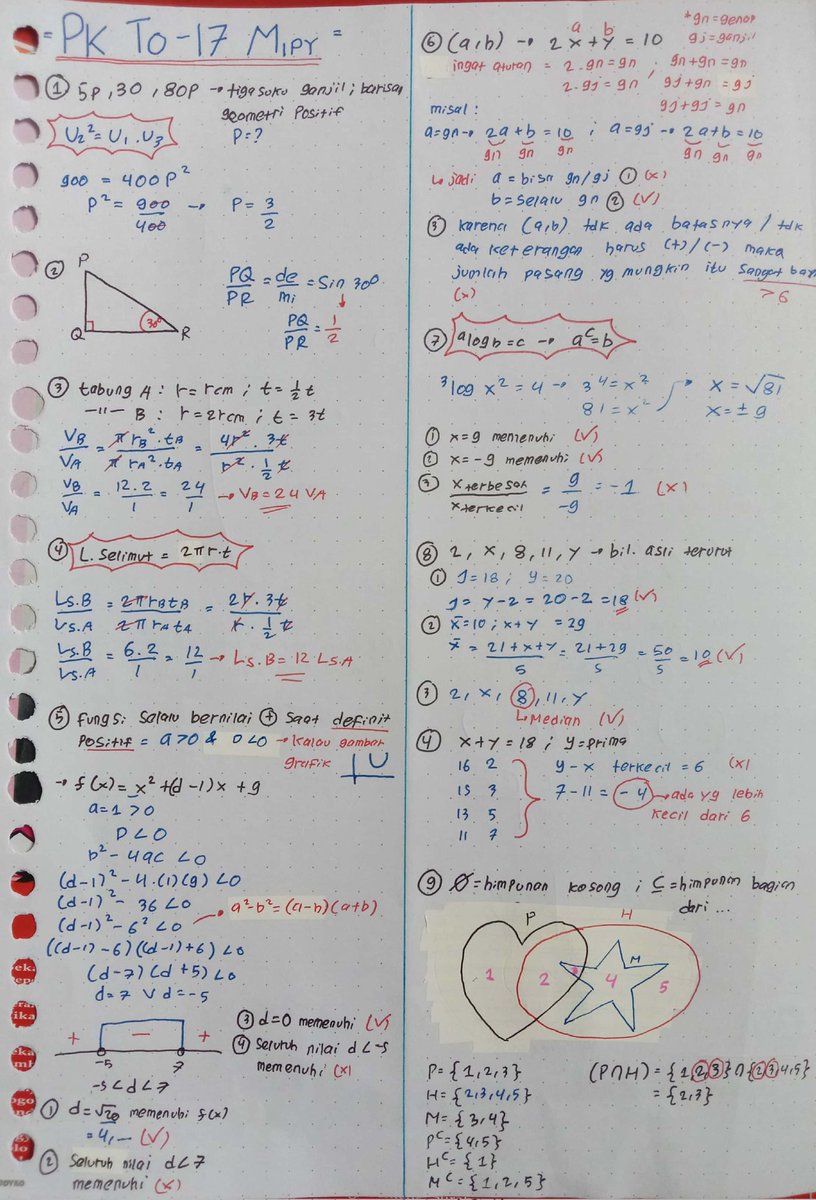 = PK TO-17 MIPY =
① 5p, 30, 80p → tiga suku ganjil ; barisan
geometri Positif
U₂² = U₁ . U₃
P = ?
900 = 400p²
p² = 900/400 → P = 3/2
②
P
Q
R
30°
PQ/PR = de/mi = Sin 30°
PQ/PR = 1/2
③ tabung A : r = r cm ; t = ½ t
—"— B : r = 2r cm ; t = 3t
VB/VA = π rB² . tB / π rA² . tA = 4r² . 3t / r² . ½ t
VB/VA = 12.2/1 = 24/1 → VB = 24 VA
④ L. Selimut = 2πr.t
Ls.B/Ls.A = 2π rB tB / 2π rA tA = 2r . 3t / r . ½ t
Ls.B/Ls.A = 6.2/1 = 12/1 → Ls.B = 12 Ls.A
⑤ fungsi Selalu bernilai ⊕ saat definit
Positif = a>0 & D<0 → kalau gambar
grafik
→ f(x) = x² + (d-1)x + 9
a = 1 > 0
D < 0
b² - 4ac < 0
(d-1)² - 4.(1)(9) < 0
(d-1)² - 36 < 0
(d-1)² - 6² < 0
a²-b² = (a-b)(a+b)
((d-1) - 6)((d-1)+6) < 0
(d-7)(d+5) < 0
d = 7 ∨ d = -5
+ − +
-5 7
-5 < d < 7
① d = √20 memenuhi f(x)
= 4,... (√)
② Seluruh nilai d < 7
memenuhi (x)
③ d = 0 memenuhi (√)
④ Seluruh nilai d < -5
memenuhi (x)
⑥ (a,b) → 2x + y = 10
a b
*gn = genap
gj = ganjil
ingat aturan = 2.gn = gn ; gn+gn = gn
2.gj = gn gj+gn = gj
gj+gj = gn
misal :
a=gn → 2a + b = 10 ; a=gj → 2a + b = 10
gn gn gn gn gn gn
↳ jadi a = bisa gn/gj ① (x)
b = selalu gn ② (√)
③ karena (a,b) tdk ada batasnya / tdk
ada keterangan harus (+)/(-) maka
jumlah pasang yg mungkin itu sangat
(x) > 6
⑦ ᵃlog b = c → aᶜ = b
³log x² = 4 → 3⁴ = x²
81 = x²
x = √81
x = ± 9
① x = 9 memenuhi (√)
② x = -9 memenuhi (√)
③ x terbesar / x terkecil = 9/-9 = -1 (x)
⑧ 2, x, 8, 11, y → bil. asli terurut
① J = 18 ; y = 20
J = y - 2 = 20 - 2 = 18 (√)
② x̄ = 10 ; x+y = 29
x̄ = 21+x+y / 5 = 21+29 / 5 = 50/5 = 10 (√)
③ 2, x, 8, 11, y
↳ Median (√)
④ x+y = 18 ; y = prima
16 2
15 3
13 5
11 7
y - x terkecil = 6 (x)
7 - 11 = -4 → ada yg lebih
kecil dari 6
⑨ Ø = himpunan kosong ; ⊆ = himpunan bagian
dari ...
P H
M
1 2 4 5
P = {1,2,3}
H = {2,3,4,5}
M = {3,4}
Pᶜ = {4,5}
Hᶜ = {1}
Mᶜ = {1,2,5}
(P∩H) = {1,2,3} ∩ {2,3,4,5}
= {2,3}